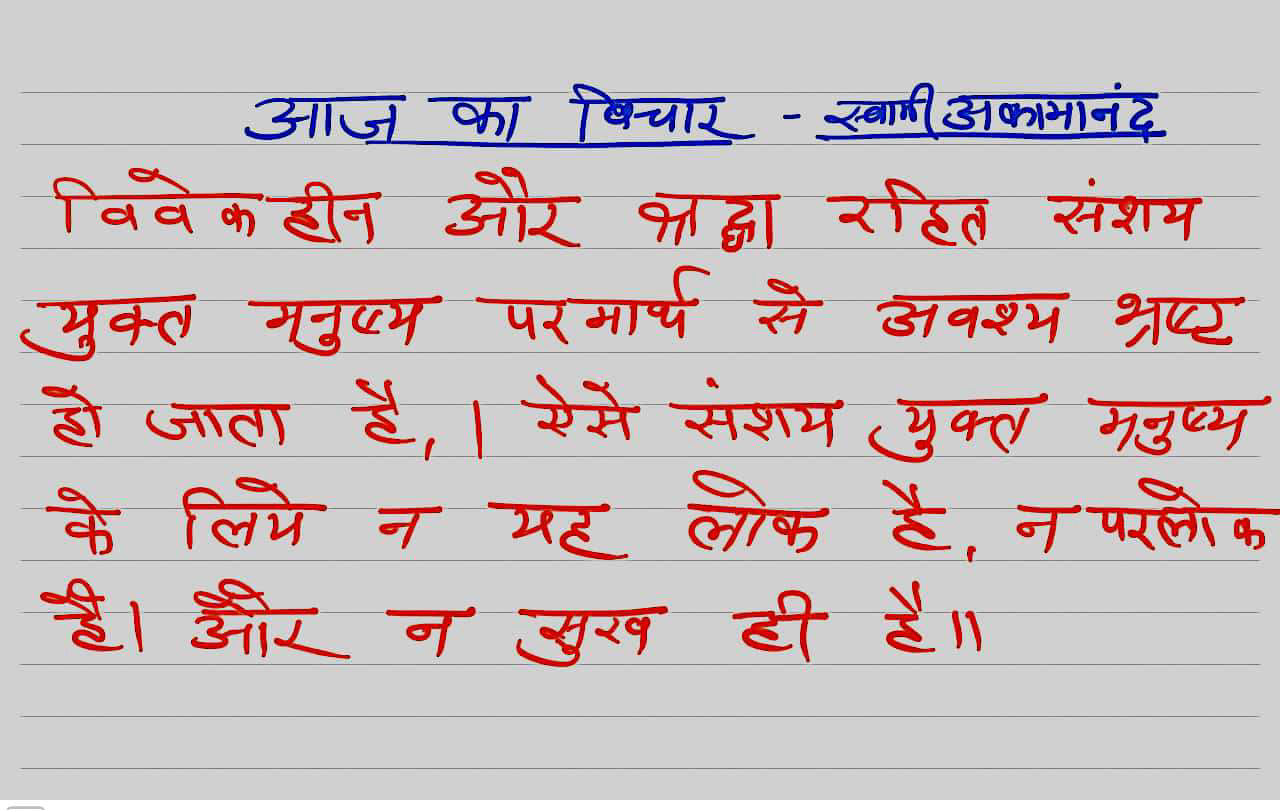 आज का विचार - स्वामी अकामानंद
विवेकहीन और श्रद्धा रहित संशय
युक्त मनुष्य परमार्थ से अवश्य भ्रष्ट
हो जाता है, । ऐसे संशय युक्त मनुष्य
के लिये न यह लोक है, न परलोक
है। और न सुख ही है॥